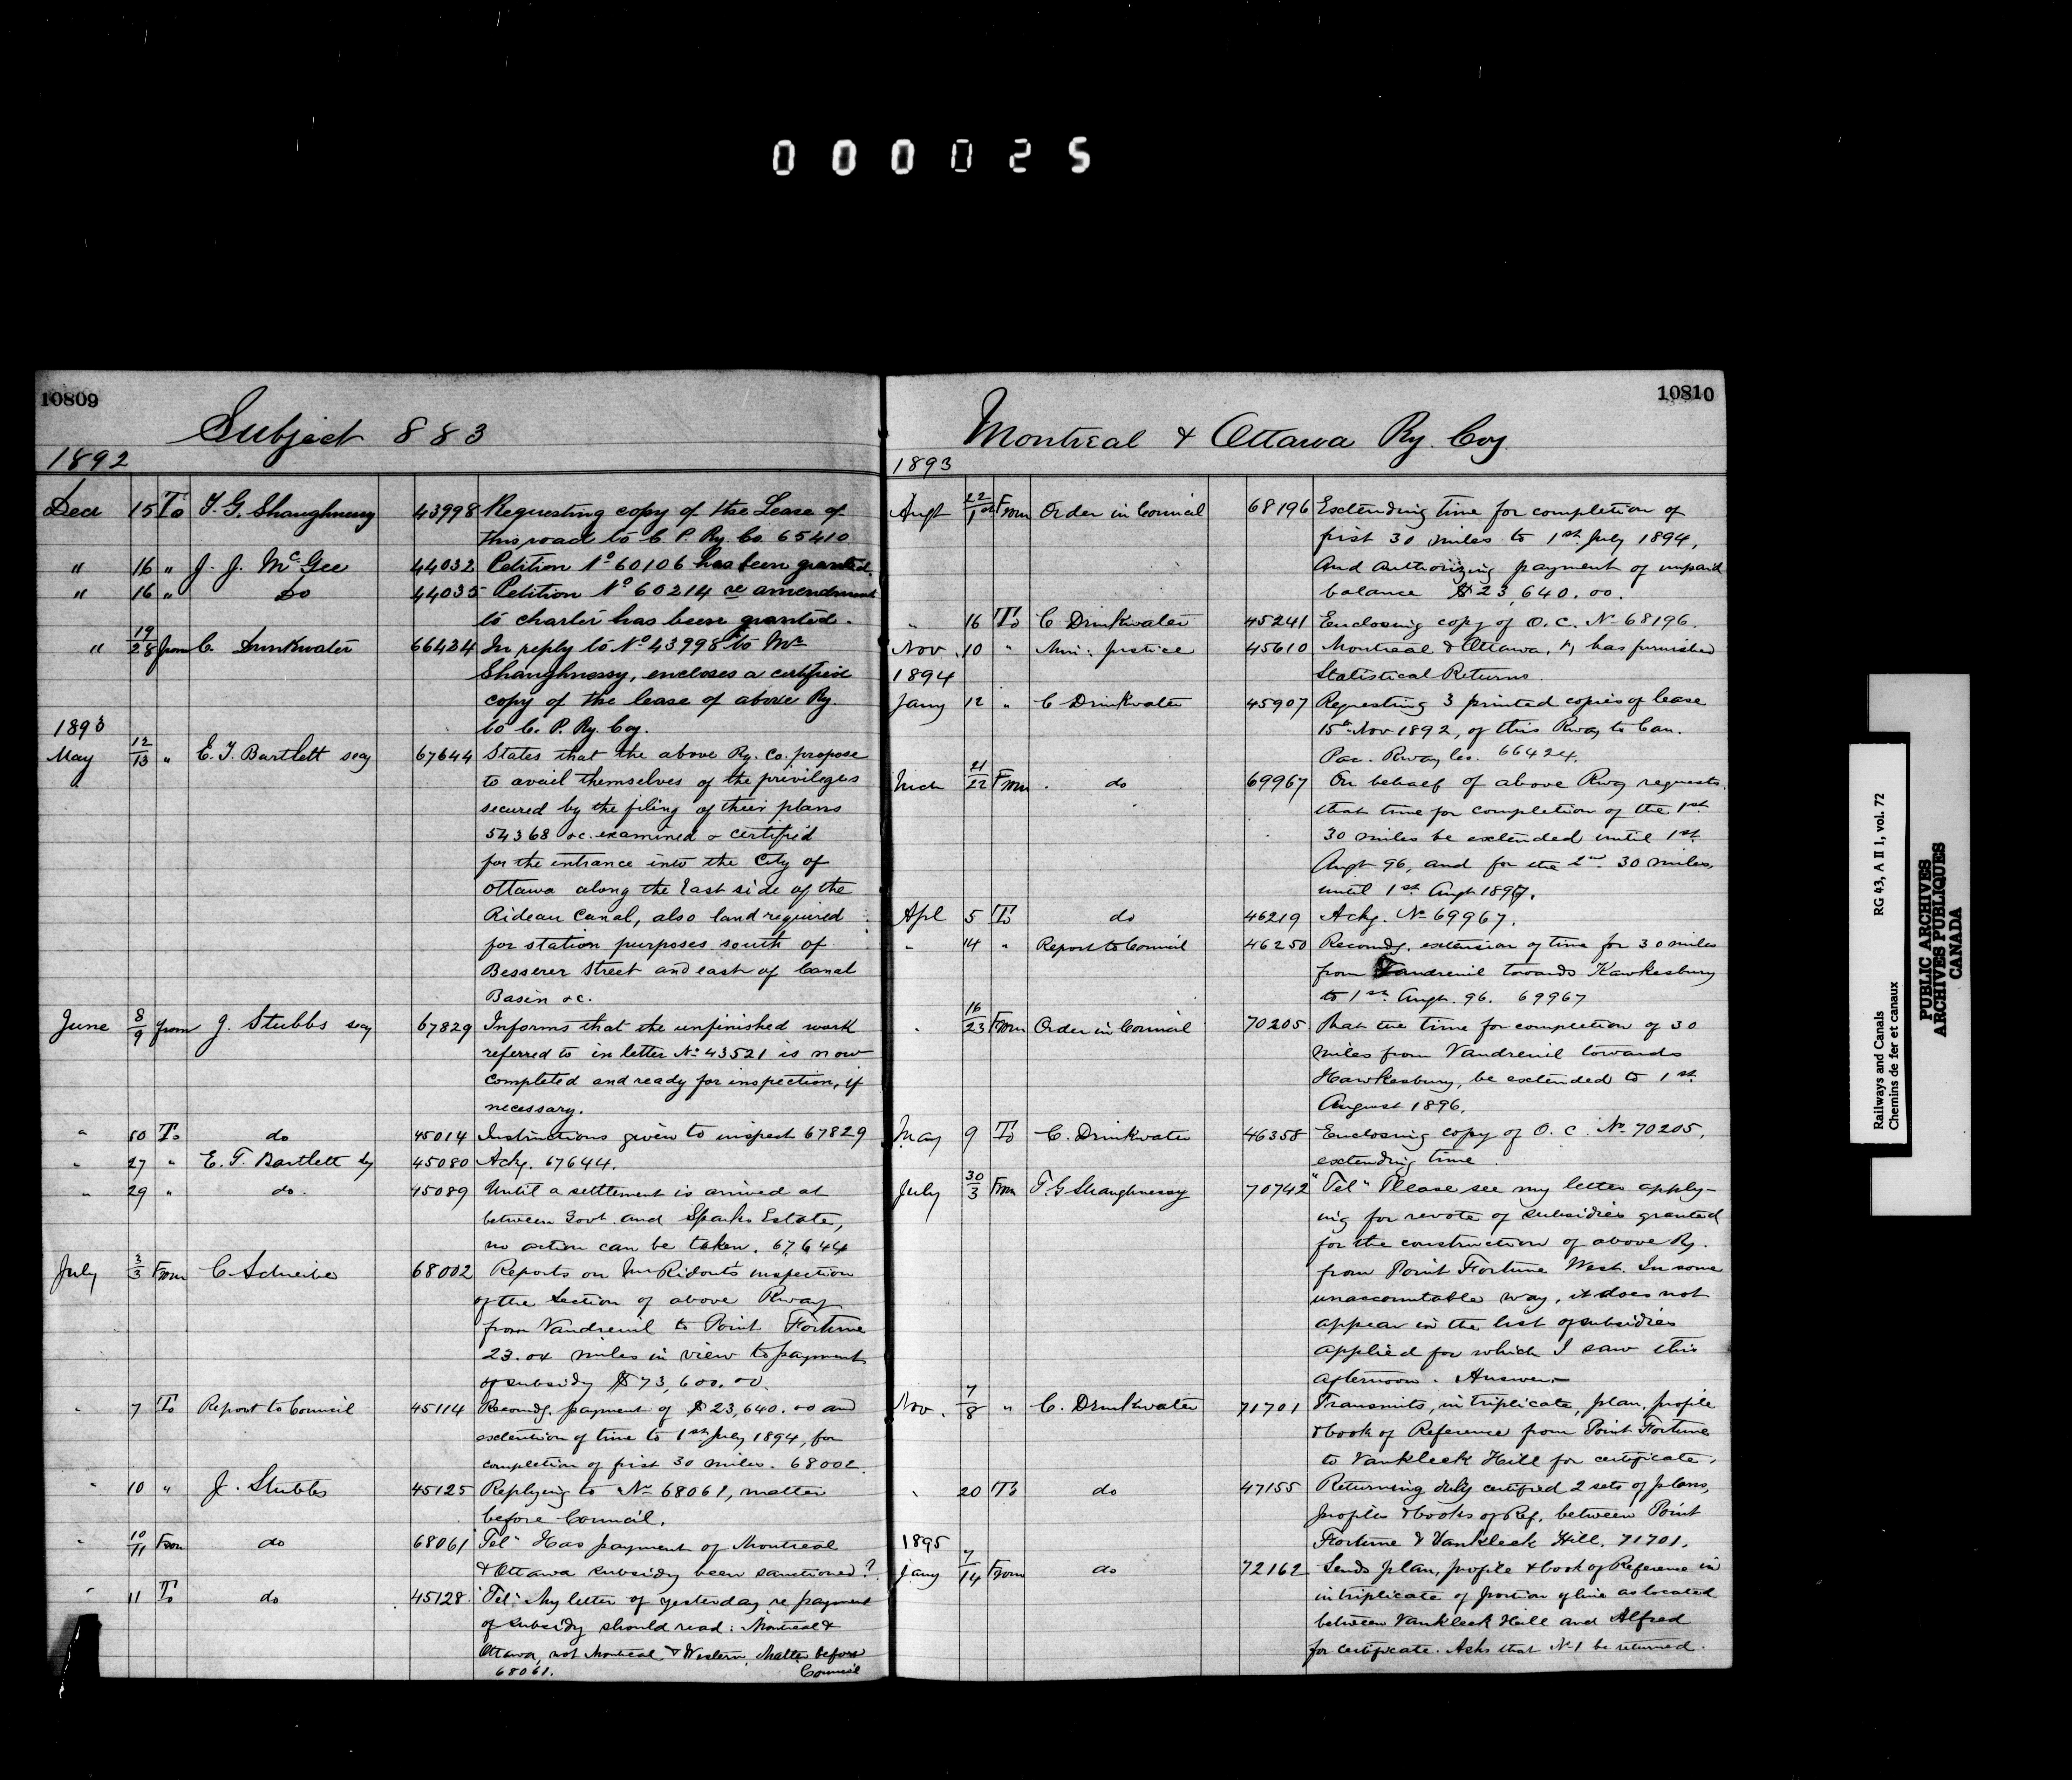 000025
10809
Subject 883
1892
Decr 15 To T. G. Shaughnessy 43998 Requesting copy of the Lease of
this road to C. P. Ry. Co. 65410
" 16 " J. J. McGee 44032 Petition No 60106 has been granted.
" 16 " Do 44035 Petition No 60214 re amendment
to charter has been granted.
" 19/28 from C. Drinkwater 66424 In reply to No 43998 to Mr
Shaughnessy, encloses a certified
copy of the lease of above Ry.
to C. P. Ry. Coy.
1893
May 12/13 " E. T. Bartlett secy 67644 States that the above Ry. Co. propose
to avail themselves of the privileges
secured by the filing of their plans
54368 &c. examined & certified
for the entrance into the City of
Ottawa along the East side of the
Rideau Canal, also land required
for station purposes south of
Besserer Street and east of Canal
Basin &c.
June 8/9 from J. Stubbs secy 67829 Informs that the unfinished work
referred to in letter No 43521 is now
completed and ready for inspection, if
necessary.
" To do 45014 Instructions given to inspect 67829
" 27 " E. T. Bartlett Sy 45080 Ackg. 67644.
" 29 " do. 45089 Until a settlement is arrived at
between Govt. and Sparks Estate,
no action can be taken. 67644
July 3/3 From C. Schreiber 68002 Reports on Mr Ridout's inspection
of the Section of above Rway
from Vaudreuil to Point Fortune
23.04 miles in view to payment
of subsidy $73,600.00.
" 7 To Report to Council 45114 Recomdg. payment of $23,640.00 and
extention of time to 1st July 1894, for
completion of first 30 miles. 68002.
" 10 " J. Stubbs 45125 Replying to No 68061, matter
before Council.
" 10/11 From do 68061 "Tel" Has payment of Montreal
& Ottawa subsidy been sanctioned?
" 11 To do 45128 "Tel" My letter of yesterday re payment
of subsidy should read: Montreal &
Ottawa, not Montreal & Western. Matter before
68061. Council
10810
Montreal & Ottawa Ry. Coy.
1893
Augt 22/1st From Order in Council 68196 Extending time for completion of
first 30 miles to 1st July 1894,
and authorizing payment of unpaid
balance $23,640.00.
" 16 To C Drinkwater 45241 Enclosing copy of O. C. No 68196.
Nov. 10 " Min. Justice 45610 Montreal & Ottawa, Ry has furnished
1894 Statistical Returns.
Jany 12 " C Drinkwater 45907 Requesting 3 printed copies of lease
15th Nov 1892, of this Rway to Can.
Pac. Rway Co. 66424.
Mch 21/22 From do 69967 On behalf of above Rwy requests
that time for completion of the 1st
30 miles be extended until 1st
Augt 96, and for the 2nd 30 miles,
until 1st Augt 1897.
Apl 5 To do 46219 Ackg. No 69967.
" 14 " Report to Council 46250 Recomdg. extension of time for 30 miles
from Vaudreuil towards Hawkesbury
to 1st Augt. 96. 69967
" 16/23 From Order in Council 70205 That the time for completion of 30
miles from Vaudreuil towards
Hawkesbury, be extended to 1st
August 1896.
May 9 To C. Drinkwater 46358 Enclosing copy of O. C. No 70205,
extending time.
July 30/3 From T. G Shaughnessy 70742 "Tel" Please see my letter apply-
ing for revote of subsidies granted
for the construction of above Ry.
from Point Fortune West. In some
unaccountable way, it does not
appear in the list of subsidies
applied for which I saw this
afternoon. Answer.
Nov. 7/8 " C. Drinkwater 71701 Transmits, in triplicate, plan, profile
& book of Reference from Point Fortune
to Vankleek Hill for certificate.
" 20 To do 47155 Returning duly certified 2 sets of plans,
profiles & books of Ref. between Point
1895 Fortune & Vankleek Hill. 71701.
Jany 7/14 From do 72162 Sends plan, profile & book of Reference in
in triplicate of portion of line as located
between Vankleek Hill and Alfred
for certificate. Asks that No 1 be returned.
Railways and Canals RG 43, A II 1, vol. 72
Chemins de fer et canaux
PUBLIC ARCHIVES
ARCHIVES PUBLIQUES
CANADA